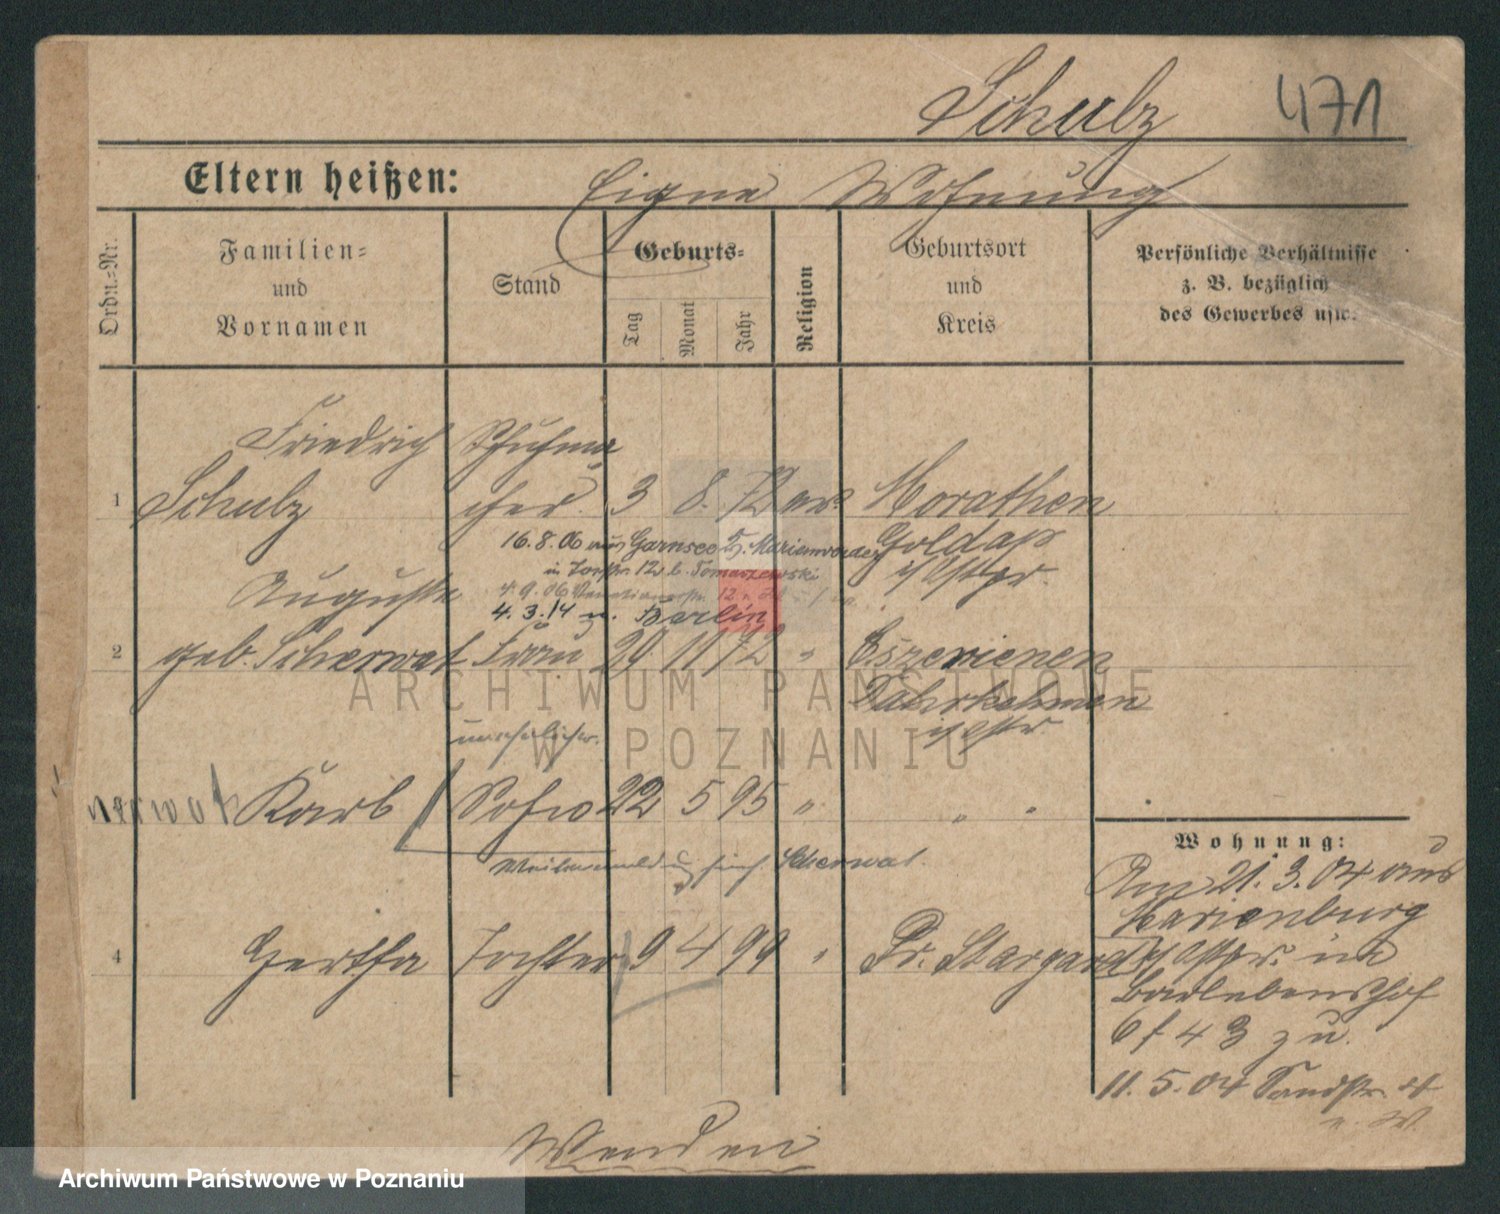 Schulz 471
Eltern heißen: Eigne Wohnung
Ordn.=Nr.
Familien= und Vornamen
Stand
Geburts=
Tag
Monat
Jahr
Religion
Geburtsort und Kreis
Persönliche Verhältnisse
z. B. bezüglich
des Gewerbes usw.
Friedrich Schuhma
1 Schulz cher 3 8. 72 ev. Morathen
16.8.06 aus Garnsee Kr. Marienwerder Goldap
in 12 b. Tomaszewski
4.9.06 12
Auguste
4.3.14 n. Berlin
2 geb. Scherwat Frau 29 11 72 " Eszerienen
Darkehmen
unehelicher
Karl Sohn 22 5 95 " " "
Scherwat.
4 Gertha Tochter 9 4 99 " Pr. Stargard
Wohnung:
Am 21.3.04 aus
Marienburg
in
Bartlebenshof
6 43 zu.
11.5.04 Sandstr. 4
n. W.
Wenden
ARCHIWUM PAŃSTWOWE
W POZNANIU
Archiwum Państwowe w Poznaniu